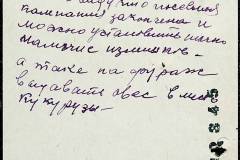 посевная
кампания закончена и
можно установить точно
наличие излишков —
а также на фураж
выдавать овес вместо
кукурузы —